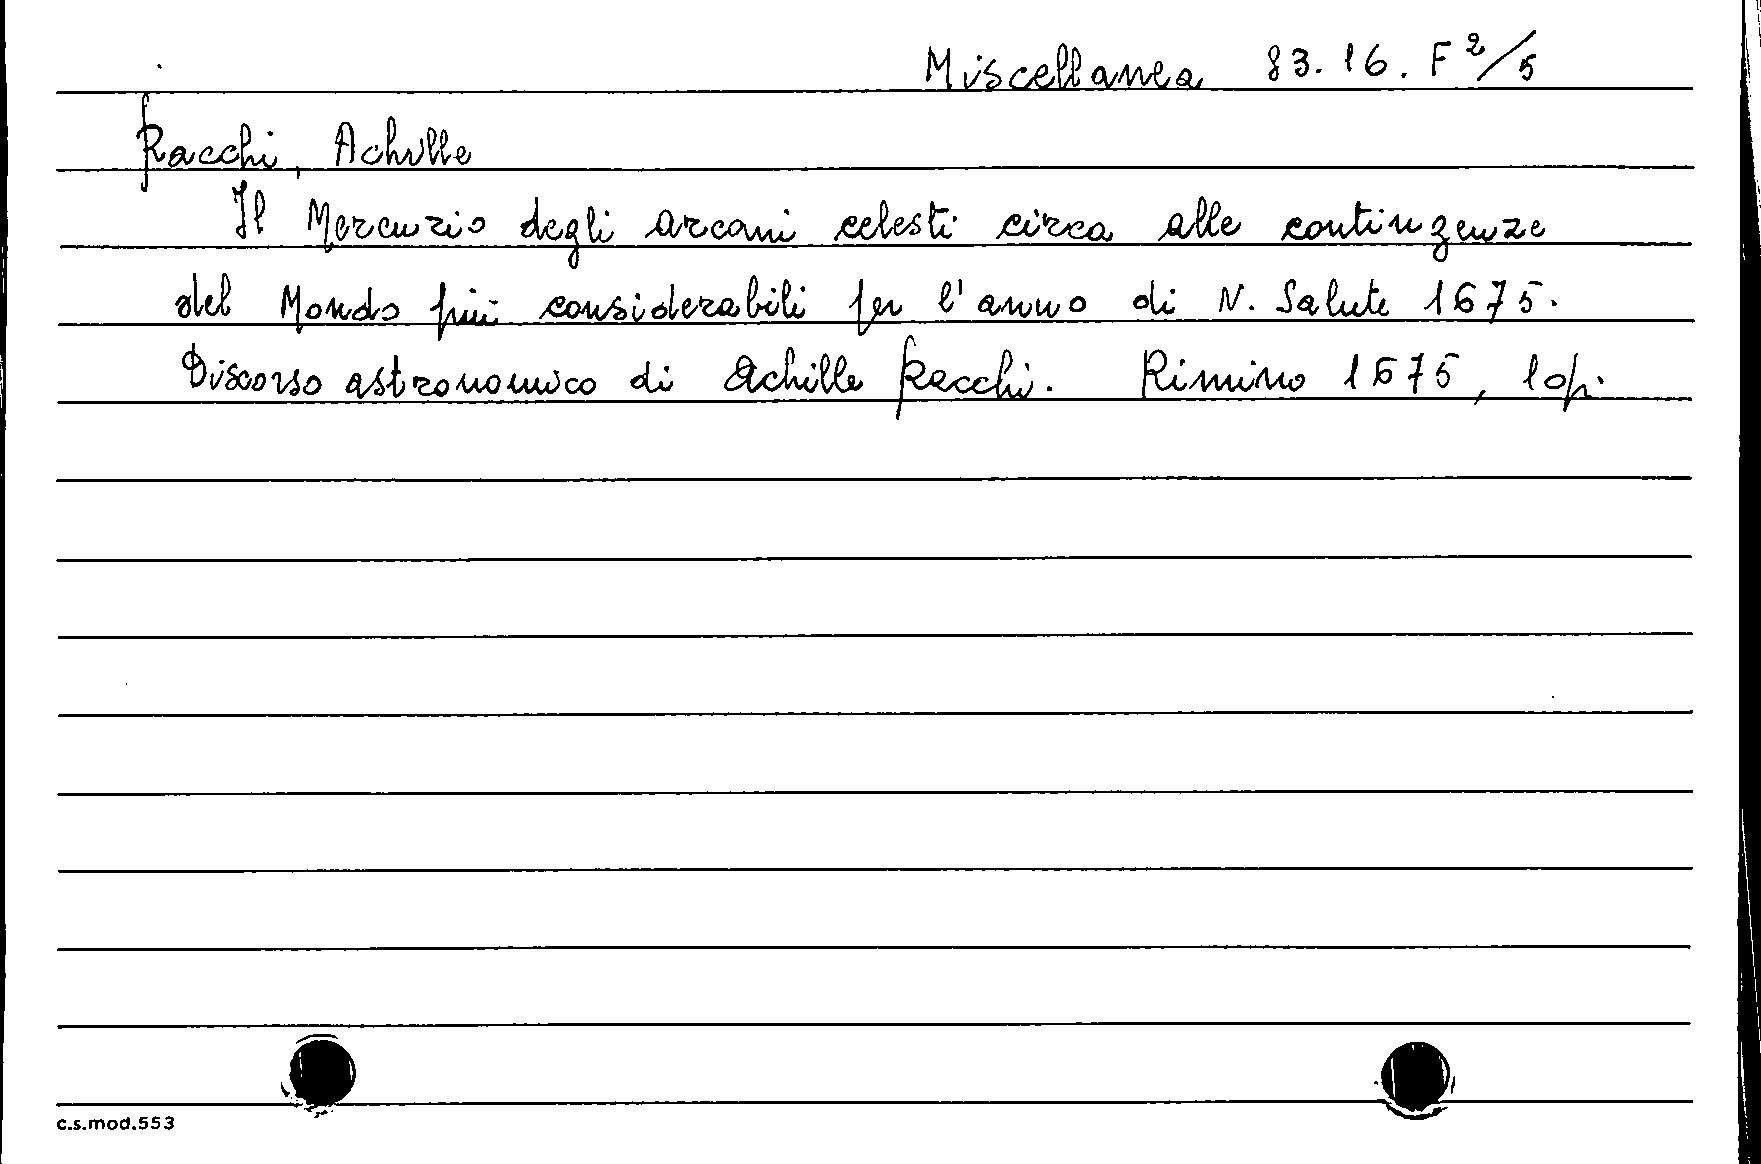 Miscellanea 83.16. F 2/5
Racchi, Achille
Il Mercurio degli arcani celesti circa alle contingenze
del Mondo più considerabili per l'anno di N. Salute 1675.
Discorso astronomico di Achille Racchi. Rimino 1675, 1 op.
c.s.mod.553